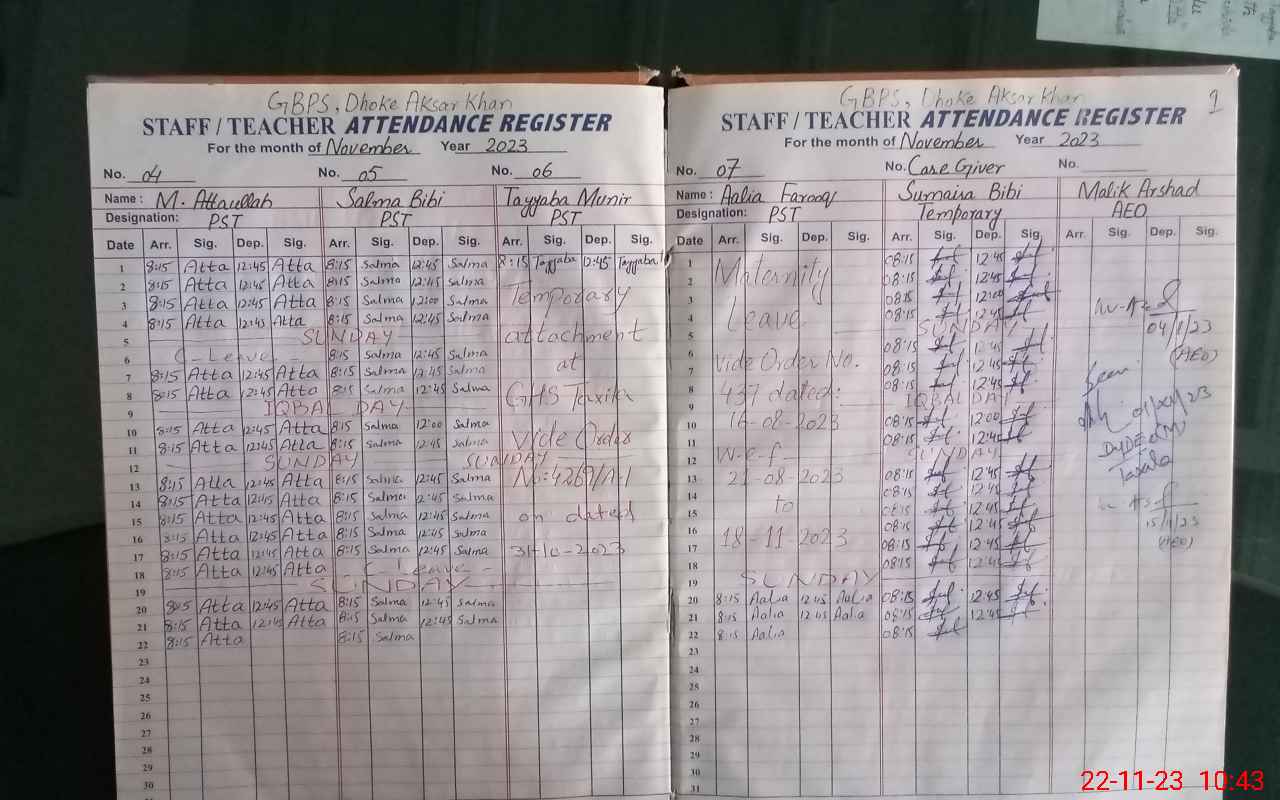 GBPS, Dhoke Aksar Khan
STAFF / TEACHER ATTENDANCE REGISTER
For the month of November Year 2023
No. 04 No. 05 No. 06
Name : M. Attaullah Salma Bibi Tayyaba Munir
Designation: PST PST PST
Date Arr. Sig. Dep. Sig. Arr. Sig. Dep. Sig. Arr. Sig. Dep. Sig.
1 8:15 Atta 12:45 Atta 8:15 Salma 12:45 Salma 8:15 Tayyaba 12:45 Tayyaba
2 8:15 Atta 12:45 Atta 8:15 Salma 12:45 Salma
3 8:15 Atta 12:45 Atta 8:15 Salma 12:00 Salma Temporary
4 8:15 Atta 12:45 Atta 8:15 Salma 12:45 Salma
5 SUNDAY attachment
6 C-Leave 8:15 Salma 12:45 Salma at
7 8:15 Atta 12:45 Atta 8:15 Salma 12:45 Salma
8 8:15 Atta 12:45 Atta 8:15 Salma 12:45 Salma GHS Taxila
9 IQBAL DAY
10 8:15 Atta 12:45 Atta 8:15 Salma 12:00 Salma Vide Order
11 8:15 Atta 12:45 Atta 8:15 Salma 12:45 Salma
12 SUNDAY SUNDAY
13 8:15 Atta 12:45 Atta 8:15 Salma 12:45 Salma No: 4269/A-1
14 8:15 Atta 12:45 Atta 8:15 Salma 12:45 Salma
15 8:15 Atta 12:45 Atta 8:15 Salma 12:45 Salma on dated
16 8:15 Atta 12:45 Atta 8:15 Salma 12:45 Salma
17 8:15 Atta 12:45 Atta 8:15 Salma 12:45 Salma 31-10-2023
18 8:15 Atta 12:45 Atta C-Leave
19 SUNDAY
20 8:15 Atta 12:45 Atta 8:15 Salma 12:45 Salma
21 8:15 Atta 12:45 Atta 8:15 Salma 12:45 Salma
22 8:15 Atta 8:15 Salma
23
24
25
26
27
28
29
30
GBPS, Dhoke Aksar Khan 1
STAFF / TEACHER ATTENDANCE REGISTER
For the month of November Year 2023
No. 07 No. Care Giver No.
Name : Aalia Farooq Sumaira Bibi Malik Arshad
Designation: PST Temporary AEO
Date Arr. Sig. Dep. Sig. Arr. Sig. Dep. Sig. Arr. Sig. Dep. Sig.
1 Maternity 08:15 12:45
2 08:15 12:45
3 08:15 12:00
4 Leave 08:15 12:45 04/11/23
5 SUNDAY
6 Vide Order No. 08:15 12:45 (AEO)
7 08:15 12:45 Seen
8 437 dated: 08:15 12:45
9 IQBAL DAY
10 16-08-2023 08:15 12:00
11 08:15 12:45
12 w-e-f SUNDAY Taxila
13 21-08-2023 08:15 12:45
14 to 08:15 12:45
15 08:15 12:45 15/11/23
16 08:15 12:45 (AEO)
17 18-11-2023 08:15 12:45
18 08:15 12:45
19 SUNDAY
20 8:15 Aalia 12:45 Aalia 08:15 12:45
21 8:15 Aalia 12:45 Aalia 08:15 12:45
22 8:15 Aalia 08:15
23
24
25
26
27
28
29
30
31
22-11-23 10:43